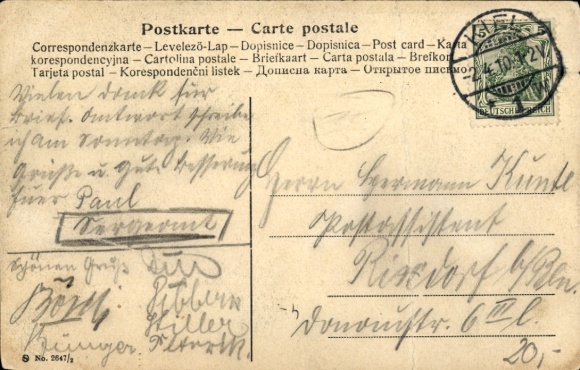 Postkarte — Carte postale
Correspondenzkarte – Levelező-Lap – Dopisnice – Dopisnica – Post card – Karta
korespondencyjna – Cartolina postale – Briefkaart – Carta postala – Brefkort
Tarjeta postal – Korespondenčni listek – Дописна карта – Открытое письмо
KIEL
2.4.10. 1-2N
1
DEUTSCHES REICH
Vielen Dank für
Brief. Antwort schreibe
ich am Sonntag. Viele
Grüße u. gute Besserung
Euer Paul
Sergeant
Schönen Gruß
Hiller
Herrn Hermann Kunze
Postassistent
Rixdorf b/Bln.
Donaustr. 6 III l.
20,-
No. 2647/2